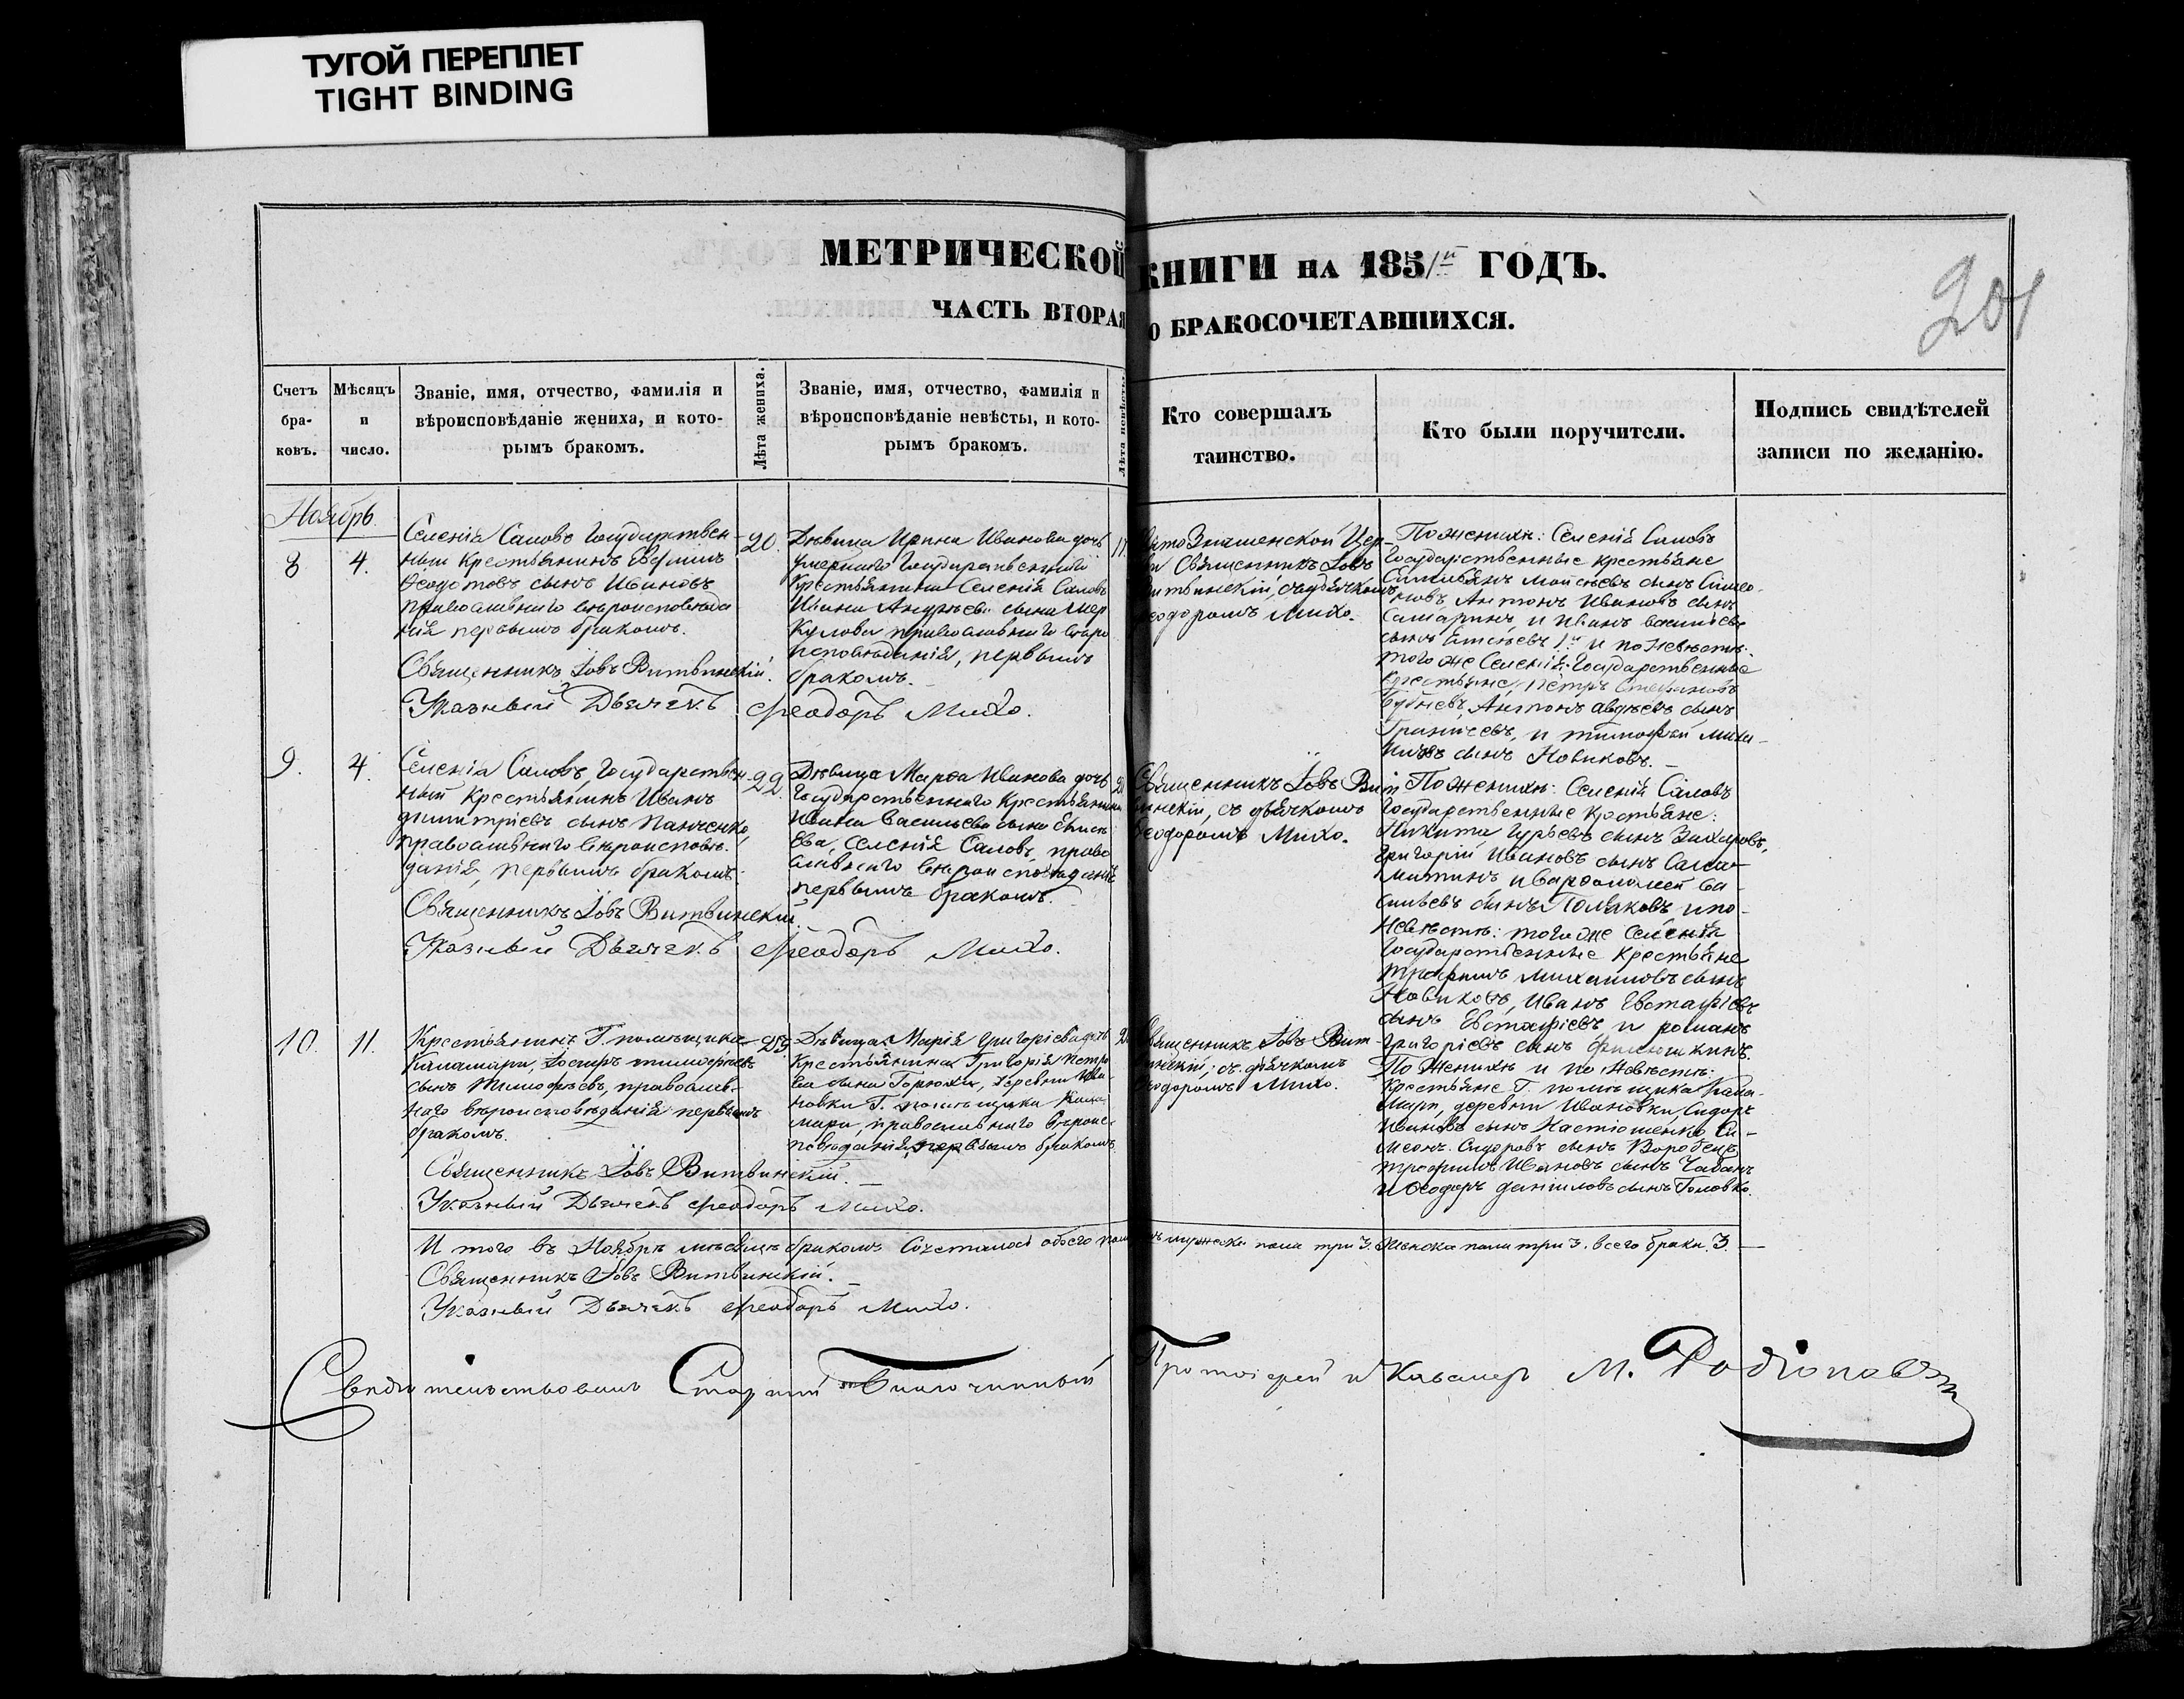 ТУГОЙ ПЕРЕПЛЕТ
TIGHT BINDING
МЕТРИЧЕСКОЙ КНИГИ НА 1851й ГОДЪ.
ЧАСТЬ ВТОРАЯ О БРАКОСОЧЕТАВШИХСЯ.
201
Счетъ
бра-
ковъ.
Мѣсяцъ
и
число.
Званіе, имя, отчество, фамилія и
вѣроисповѣданіе жениха, и кото-
рымъ бракомъ.
Лѣта жениха.
Званіе, имя, отчество, фамилія и
вѣроисповѣданіе невѣсты, и кото-
рымъ бракомъ.
Лѣта невѣсты.
Кто совершалъ
таинство.
Кто были поручители.
Подпись свидѣтелей
записи по желанію.
Ноябрь
8
4.
Селенія Саловъ Государствен-
ный Крестьянинъ Евфимъ
Ѳеодотовъ сынъ Ивановъ
православнаго вѣроисповѣда
нія первымъ бракомъ.
Священникъ Іовъ Витвинскій.
Указный Дьячекъ Ѳеодоръ Михо.
20.
Дѣвица Ирина Иванова дочь
умершаго Государственнаго
Крестьянина Селенія Саловъ
Ивана Андреева сына Мер
Кулова православнаго вѣро
исповѣданія, первымъ
бракомъ.
Знаменской Цер-
Священникъ Іовъ
Витвинскій, съ дьячкомъ
Ѳеодоромъ Михо.
По женихѣ: Селенія Саловъ
Государственные крестьяне
Моисѣевъ сынъ
Антонъ Ивановъ сынъ
Самаринъ, и Иванъ Васильевъ
сынъ Елисѣевъ и по невѣстѣ:
того же Селенія Государственные
крестьяне, Петръ Стефановъ
Антонъ Авдѣевъ сынъ
и Тимофей
сынъ Новиковъ.
9.
4.
Селенія Саловъ, Государствен
ный Крестьянинъ Иванъ
Димитріевъ сынъ Панченко,
православнаго вѣроисповѣ-
данія, первымъ бракомъ.
Священникъ Іовъ Витвинскій
Указный Дьячекъ Ѳеодоръ Михо.
22.
Дѣвица Марѳа Иванова дочь
Государственнаго Крестьянина
Ивана Васильева сына Елисѣ
Ева, Селенія Саловъ, право
славнаго вѣроисповѣданія
первымъ бракомъ.
Священникъ Іовъ Вит
винскій, съ дьячкомъ
Ѳеодоромъ Михо.
По женихѣ: Селенія Саловъ
Государственные Крестьяне:
Никита Гурьевъ сынъ Захаровъ,
Григорій Ивановъ сынъ Сала-
матинъ и Варѳоломей Ва-
сильевъ сынъ Поляковъ и по-
Невѣстѣ: того же Селенія
Государственные Крестьяне
Трофимъ Михаиловъ сынъ
Новиковъ, Иванъ Евстафіевъ
сынъ Евстафіевъ и Романъ
Григоріевъ сынъ
10.
11.
Крестьянинъ Г. помѣщика
Каламари, Іосифъ Тимофѣевъ
сынъ Тимофѣевъ, православ-
наго вѣроисповѣданія первымъ
бракомъ.
Священникъ Іовъ Витвинскій.
Указный Дьячекъ Ѳеодоръ Михо.
Дѣвица Марія Григоріева дочь
Крестьянина Григорія Петро
ва сына Деревни Ива
новки Г. помѣщика Кала
мари, православнаго вѣроис-
повѣданія, первымъ бракомъ.
Священникъ Іовъ Вит-
винскій, съ дьячкомъ
Ѳеодоромъ Михо.
По Женихѣ и по Невѣстѣ:
Крестьяне Г. помѣщика Кала-
мари, деревни Ивановки, Сидоръ
Ивановъ сынъ Настюшенко, Си-
меонъ Сидоровъ сынъ Воробецъ
Трофимъ Ивановъ сынъ Чабанъ
и Ѳеодоръ Даниловъ сынъ Головко.
И того въ Ноябрѣ мѣсяцѣ бракомъ Сочеталось обоего пола мужеска пола три 3. женска пола три 3. всего брака 3.
Священникъ Іовъ Витвинскій.
Указный Дьячекъ Ѳеодоръ Михо.
Свидѣтельствовалъ Старшій Благочинный Протоіерей и Кавалеръ М. Родіоновъ